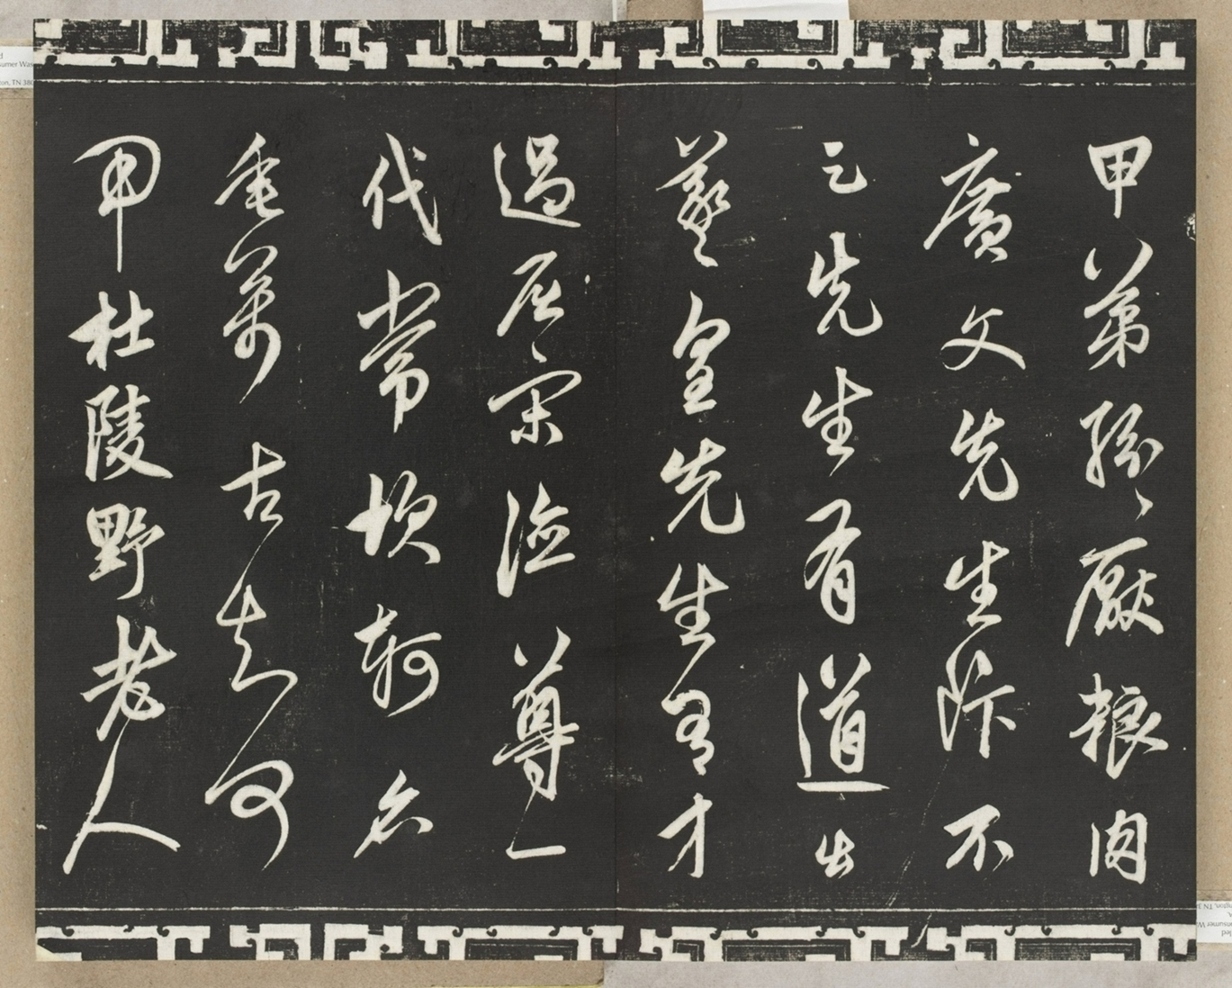 甲第紛紛厭粮肉
廣文先生飯不
足先生有道出
羲皇先生有才
過屈宋德尊一
代常坎軻名
垂萬古知何
用杜陵野老人